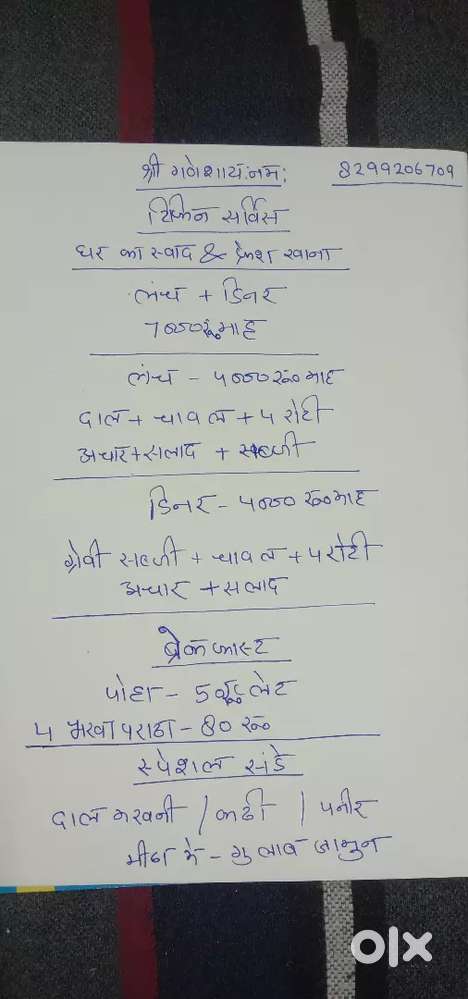 श्री गणेशाय:नम:
8299206709
टिफिन सर्विस
घर का स्वाद & फ्रेश खाना
लंच + डिनर
7000रु०माह
लंच - 4000रु०माह
दाल + चावल + 4 रोटी
अचार+सलाद + सब्जी
डिनर - 4000 रु०माह
ग्रेवी सब्जी + चावल + 4 रोटी
अचार + सलाद
ब्रेकफास्ट
पोहा - 50रु० प्लेट
4 भरवा पराठा - 80 रु०
स्पेशल संडे
दाल मखनी / कढी / पनीर
मीठा मे - गुलाब जामुन
olx